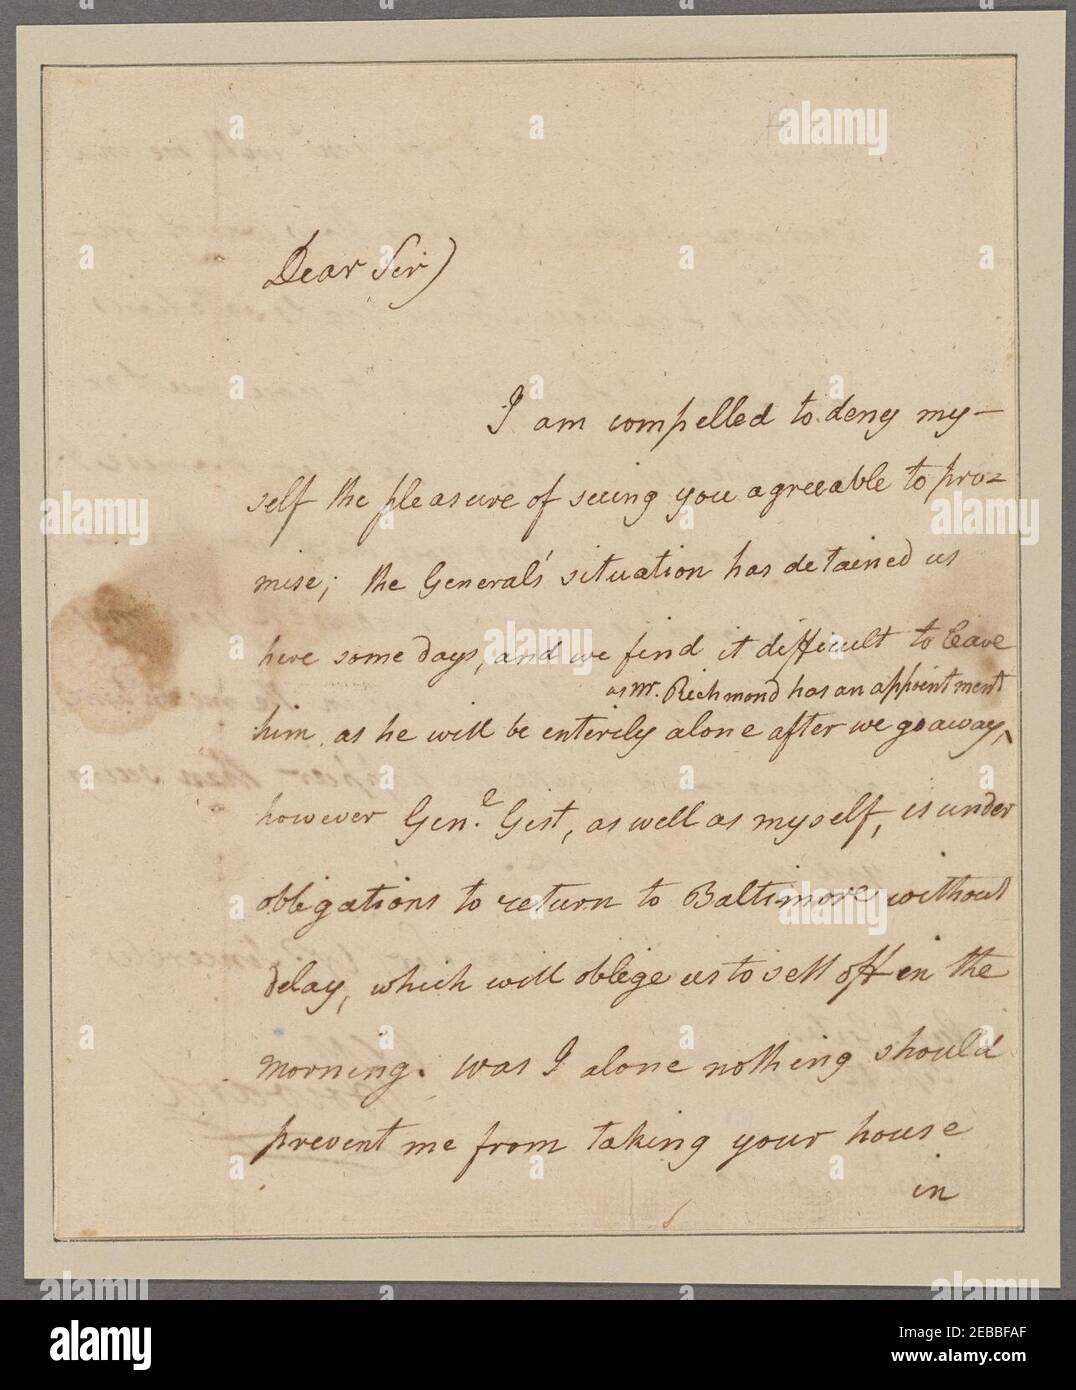 Dear Sir)
I am compelled to deny my-
self the pleasure of seeing you agreeable to pro=
mise; the General's situation has detained us
here some days, and we find it difficult to leave
as Mr. Richmond has an appointment
him as he will be entirely alone after we go away,
however Genl. Gist, as well as myself, is under
obligations to return to Baltimore without
delay, which will oblege us to sett off in the
morning. Was I alone nothing should
prevent me from taking your house
in
alamy
Image ID: 2EBBFAF
www.alamy.com